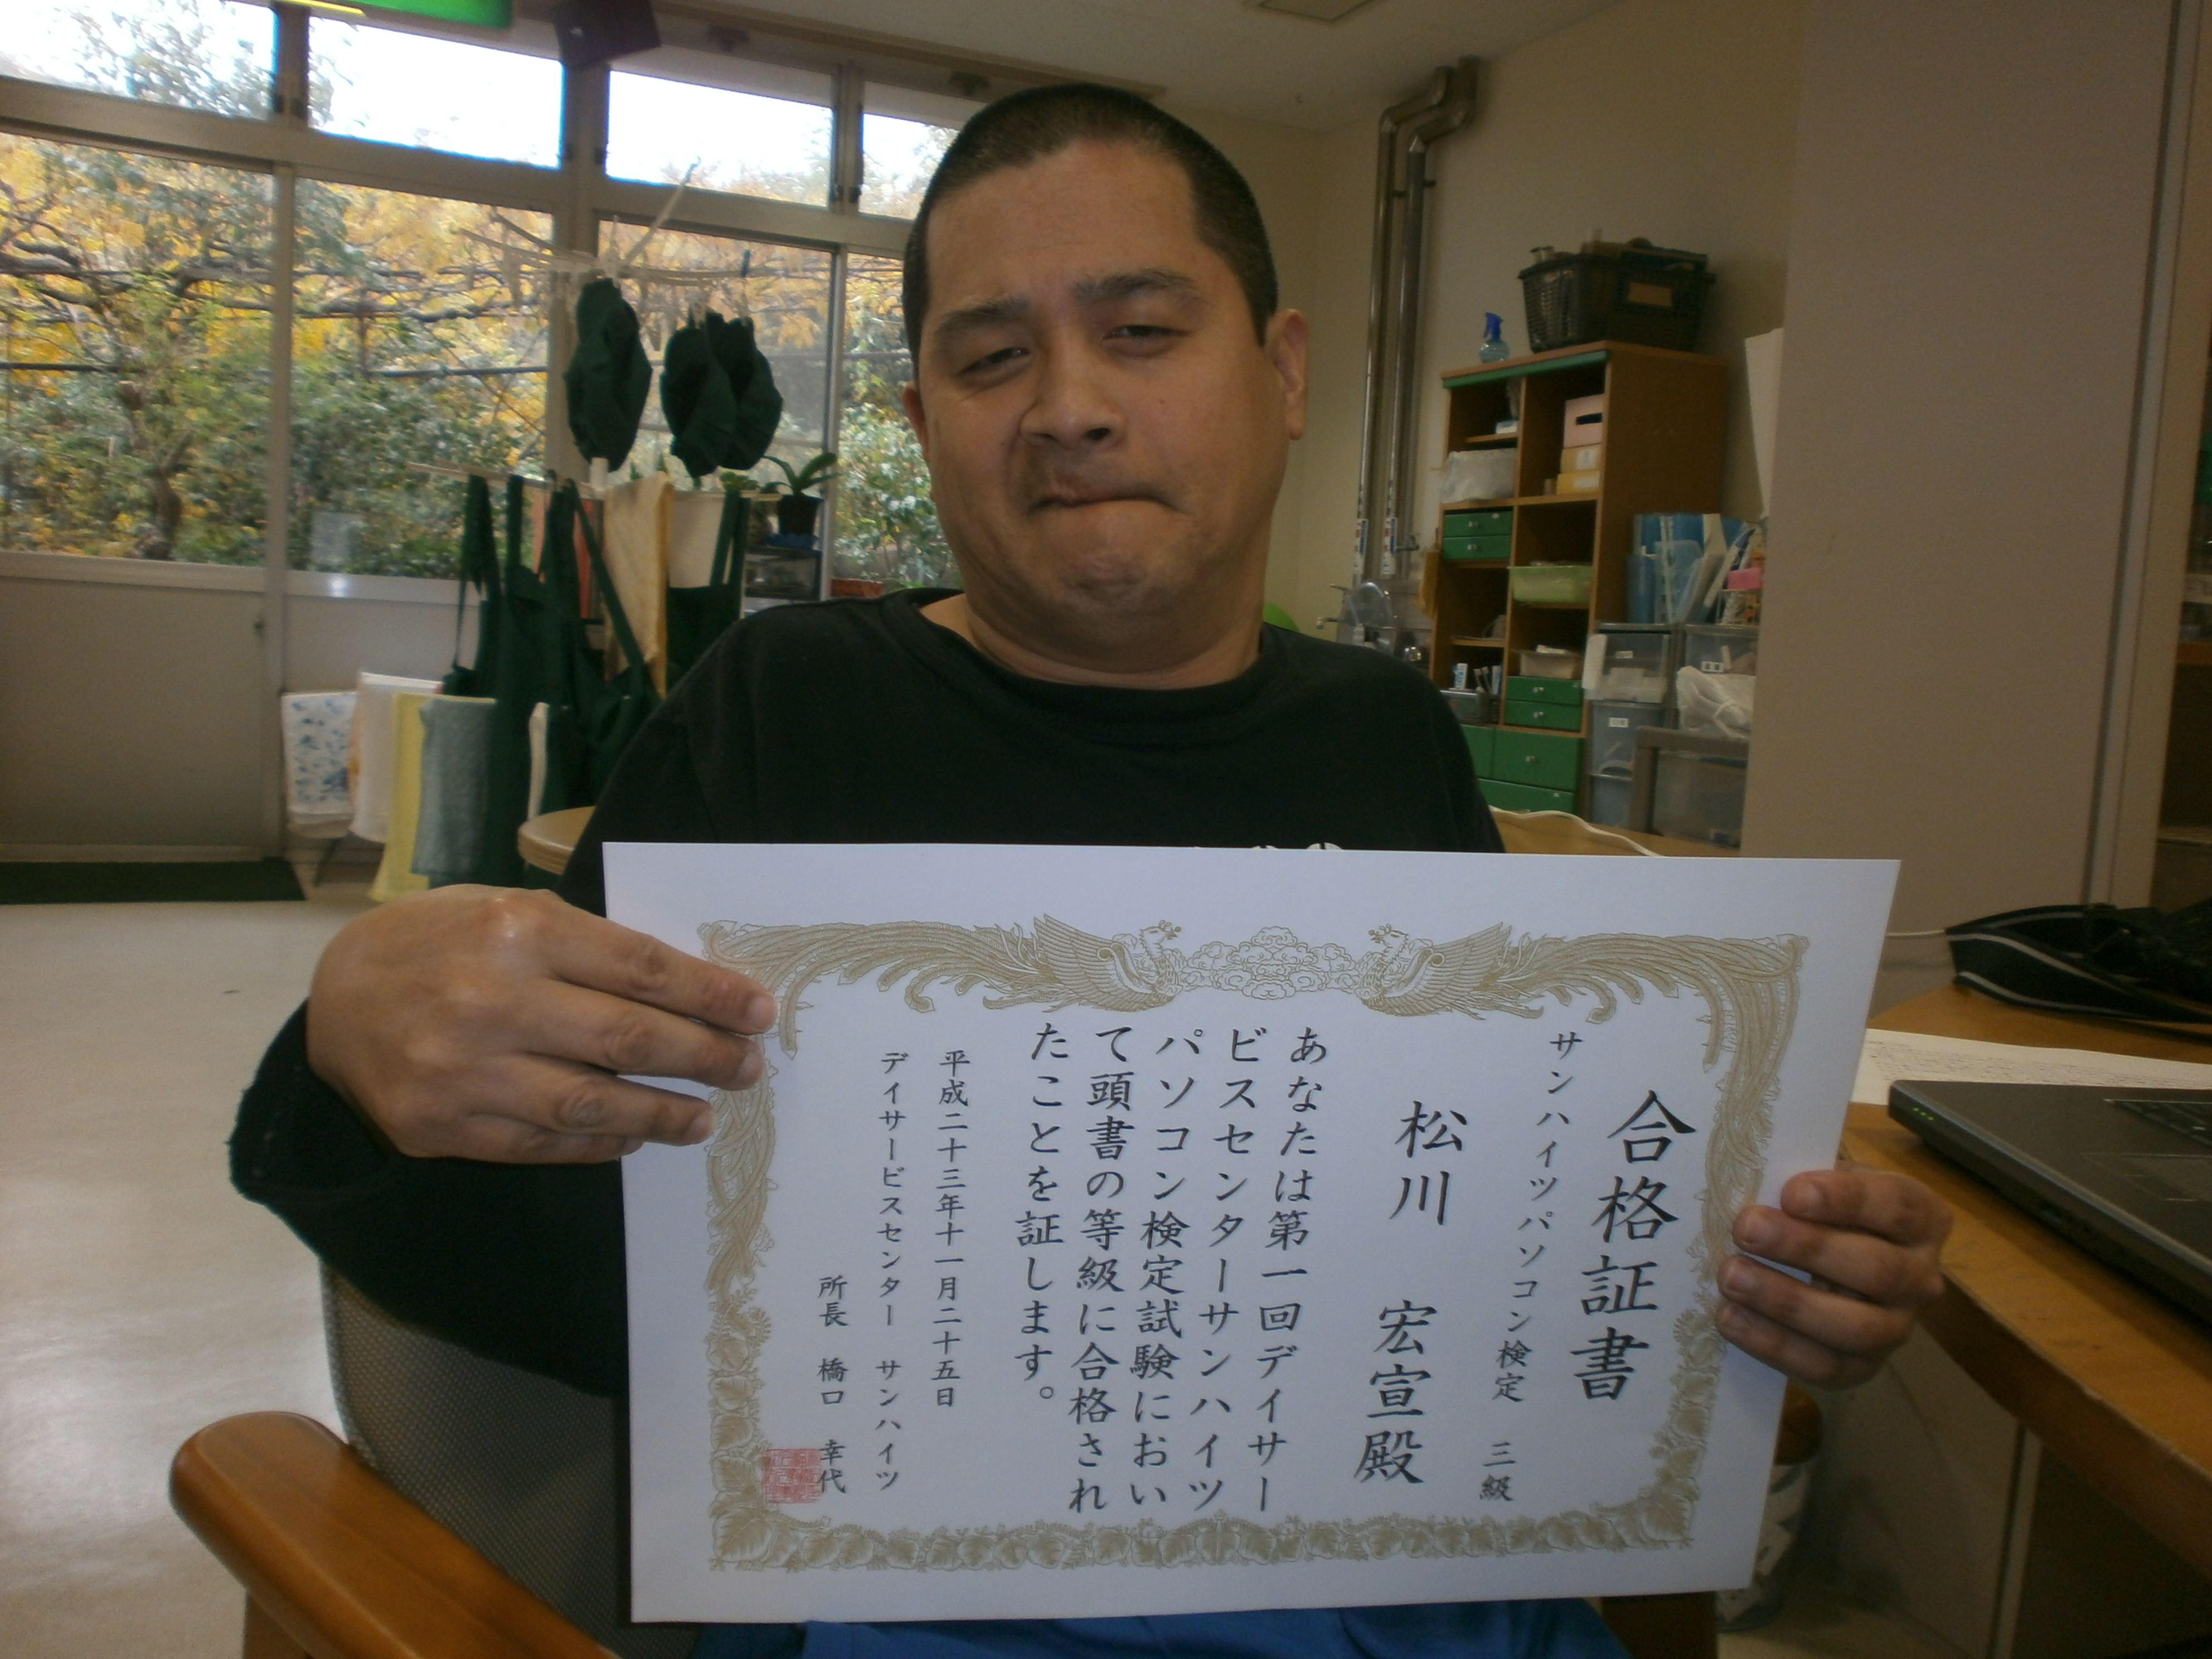 合格証書
サンハイツパソコン検定 三級
松川 宏宣殿
あなたは第一回デイサー
ビスセンターサンハイツ
パソコン検定試験におい
て頭書の等級に合格され
たことを証します。
平成二十三年十一月二十五日
デイサービスセンター サンハイツ
所長 橋口 幸代